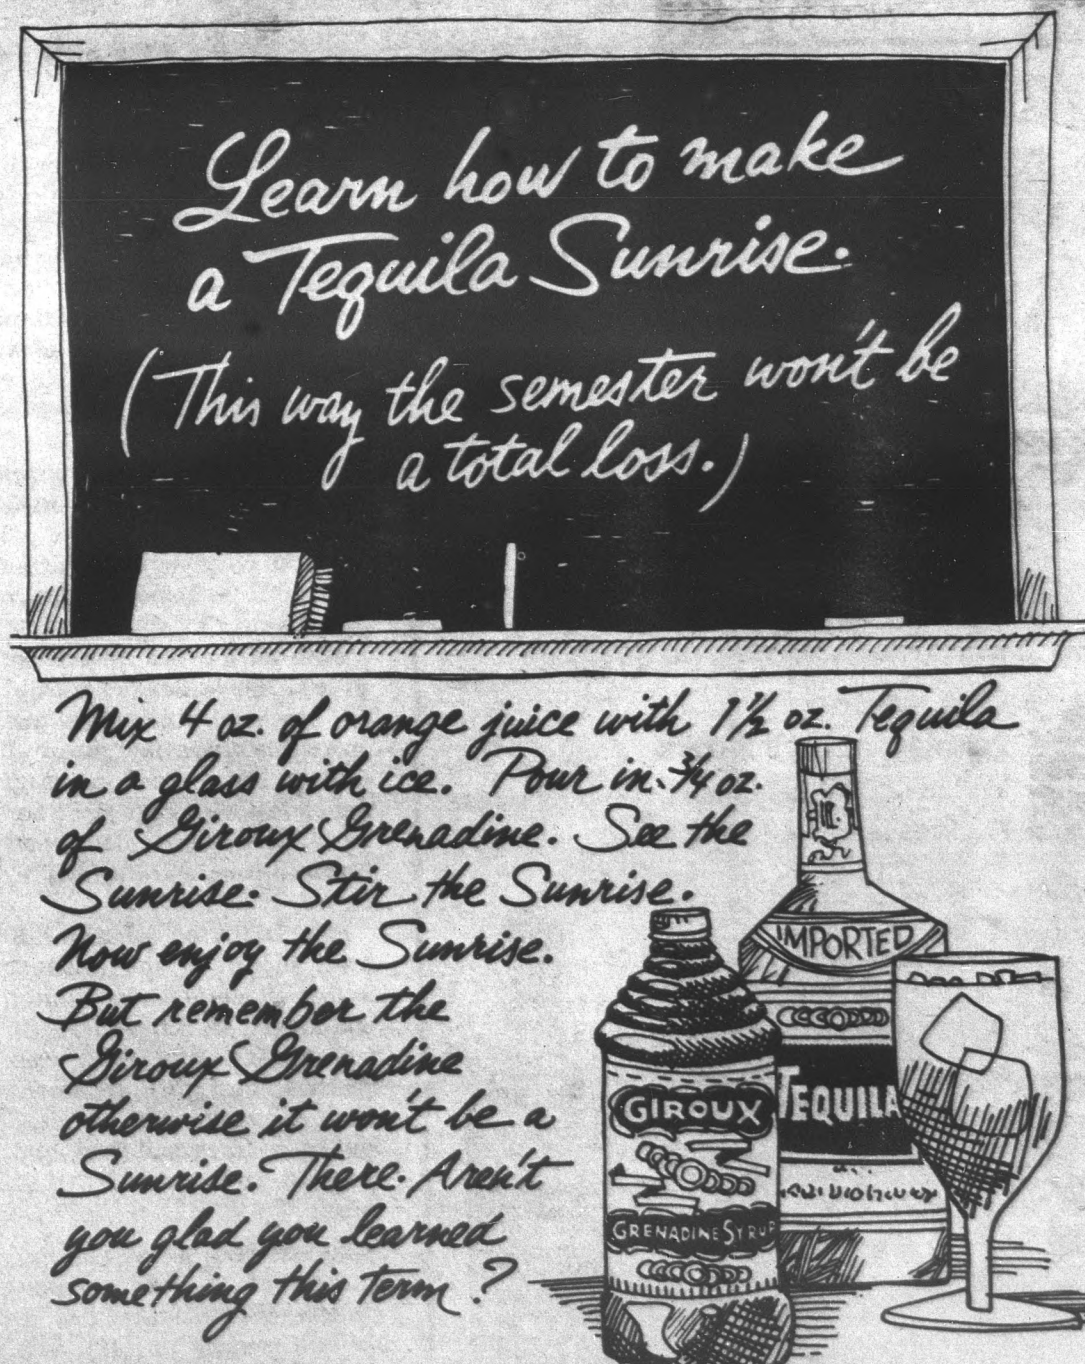 Learn how to make
a Tequila Sunrise.
(This way the semester won't be
a total loss.)
Mix 4 oz. of orange juice with 1½ oz. Tequila
in a glass with ice. Pour in ¾ oz.
of Giroux Grenadine. See the
Sunrise. Stir the Sunrise.
Now enjoy the Sunrise.
But remember the
Giroux Grenadine
otherwise it won't be a
Sunrise. There. Aren't
you glad you learned
something this term?
IMPORTED
TEQUILA
GIROUX
GRENADINE SYRUP